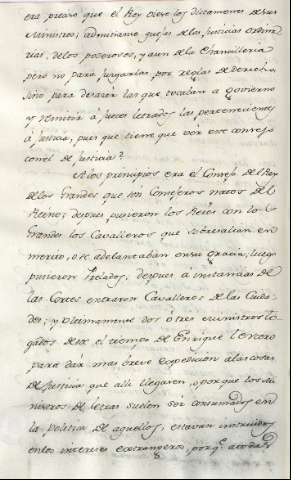 era preciso que el Rey oiese los dictamenes de sus
Ministros; admitiamos quejas de las Justicias ordina
rias, de los poderosos, y aun de la Chancilleria
pero no para juzgarlas, por reglas de derecho,
sino para desatar las que tocaban a govierno
y remitir a jueces letrados las pertenecientes
a justicia, pues que tiene que ver este consejo
con el de justicia?
A los principios era el Consejo del Rey
de los Grandes que son Consejeros natos del
Reino; despues pusieron los Reies con los
Grandes los Cavalleros que sobresalian en
merito, o se adelantaban en su gracia; luego
pusieron Prelados, despues a instancias de
las Cortes entraron Cavalleros de las Ciuda
des; y ultimamente dos ó tres Ministros To
gados desde el tiempo de Enrique tercero
para dar mas breve expedicion a las cosas
de Justicia que alli llegaren, o porque los Mi
nistros de letras suelen ser consumados en
la politica de aquellos, estavan instruidos
en los intereses extrangeros, porq.e